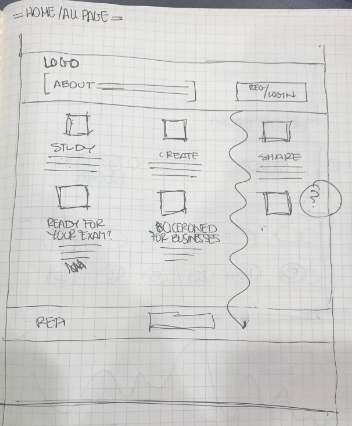 = HOME/ALL PAGE =
LOGO
ABOUT
REG/LOGIN
STUDY
CREATE
SHARE
?
READY FOR
YOUR EXAM?
FOR BUSINESSES